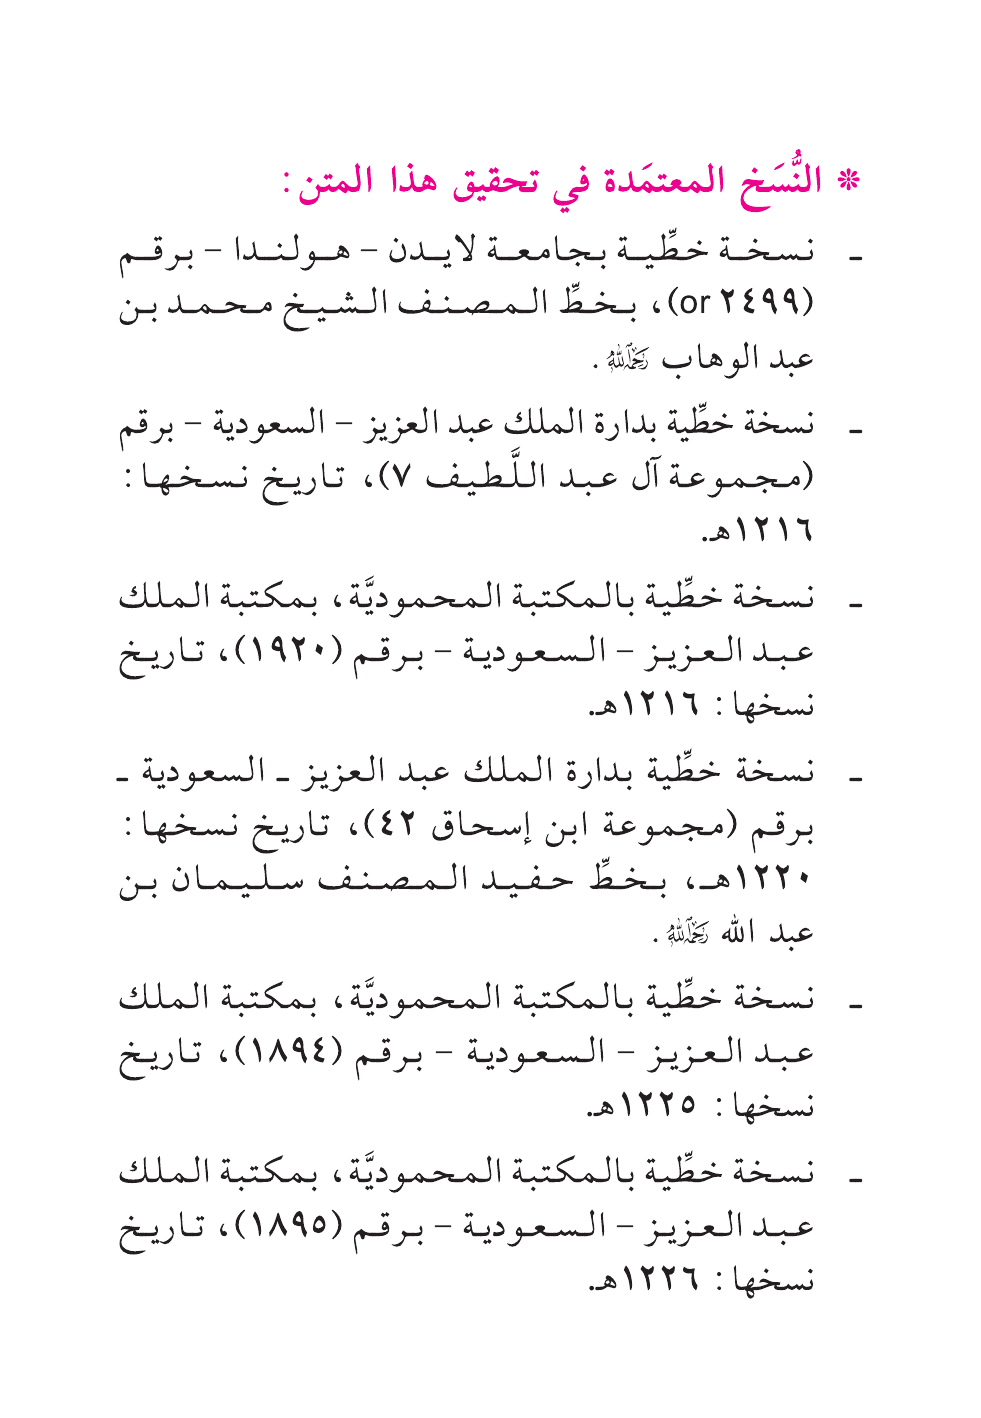 * النُّسَخ المعتمَدة في تحقيق هذا المتن:
ـ نسخة خطِّية بجامعة لايدن – هولندا – برقم
(or ٢٤٩٩)، بخطِّ المصنف الشيخ محمد بن
عبد الوهاب رحمه الله.
ـ نسخة خطِّية بدارة الملك عبد العزيز – السعودية – برقم
(مجموعة آل عبد اللَّطيف ٧)، تاريخ نسخها:
١٢١٦هـ.
ـ نسخة خطِّية بالمكتبة المحموديَّة، بمكتبة الملك
عبد العزيز – السعودية – برقم (١٩٢٠)، تاريخ
نسخها: ١٢١٦هـ.
ـ نسخة خطِّية بدارة الملك عبد العزيز ـ السعودية ـ
برقم (مجموعة ابن إسحاق ٤٢)، تاريخ نسخها:
١٢٢٠هـ، بخطِّ حفيد المصنف سليمان بن
عبد الله رحمه الله.
ـ نسخة خطِّية بالمكتبة المحموديَّة، بمكتبة الملك
عبد العزيز – السعودية – برقم (١٨٩٤)، تاريخ
نسخها: ١٢٢٥هـ.
ـ نسخة خطِّية بالمكتبة المحموديَّة، بمكتبة الملك
عبد العزيز – السعودية – برقم (١٨٩٥)، تاريخ
نسخها: ١٢٢٦هـ.